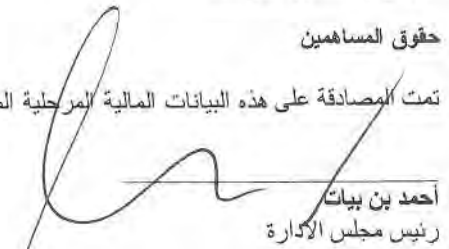 حقوق المساهمين
تمت المصادقة على هذه البيانات المالية المرحلية
أحمد بن بيات
رئيس مجلس الادارة